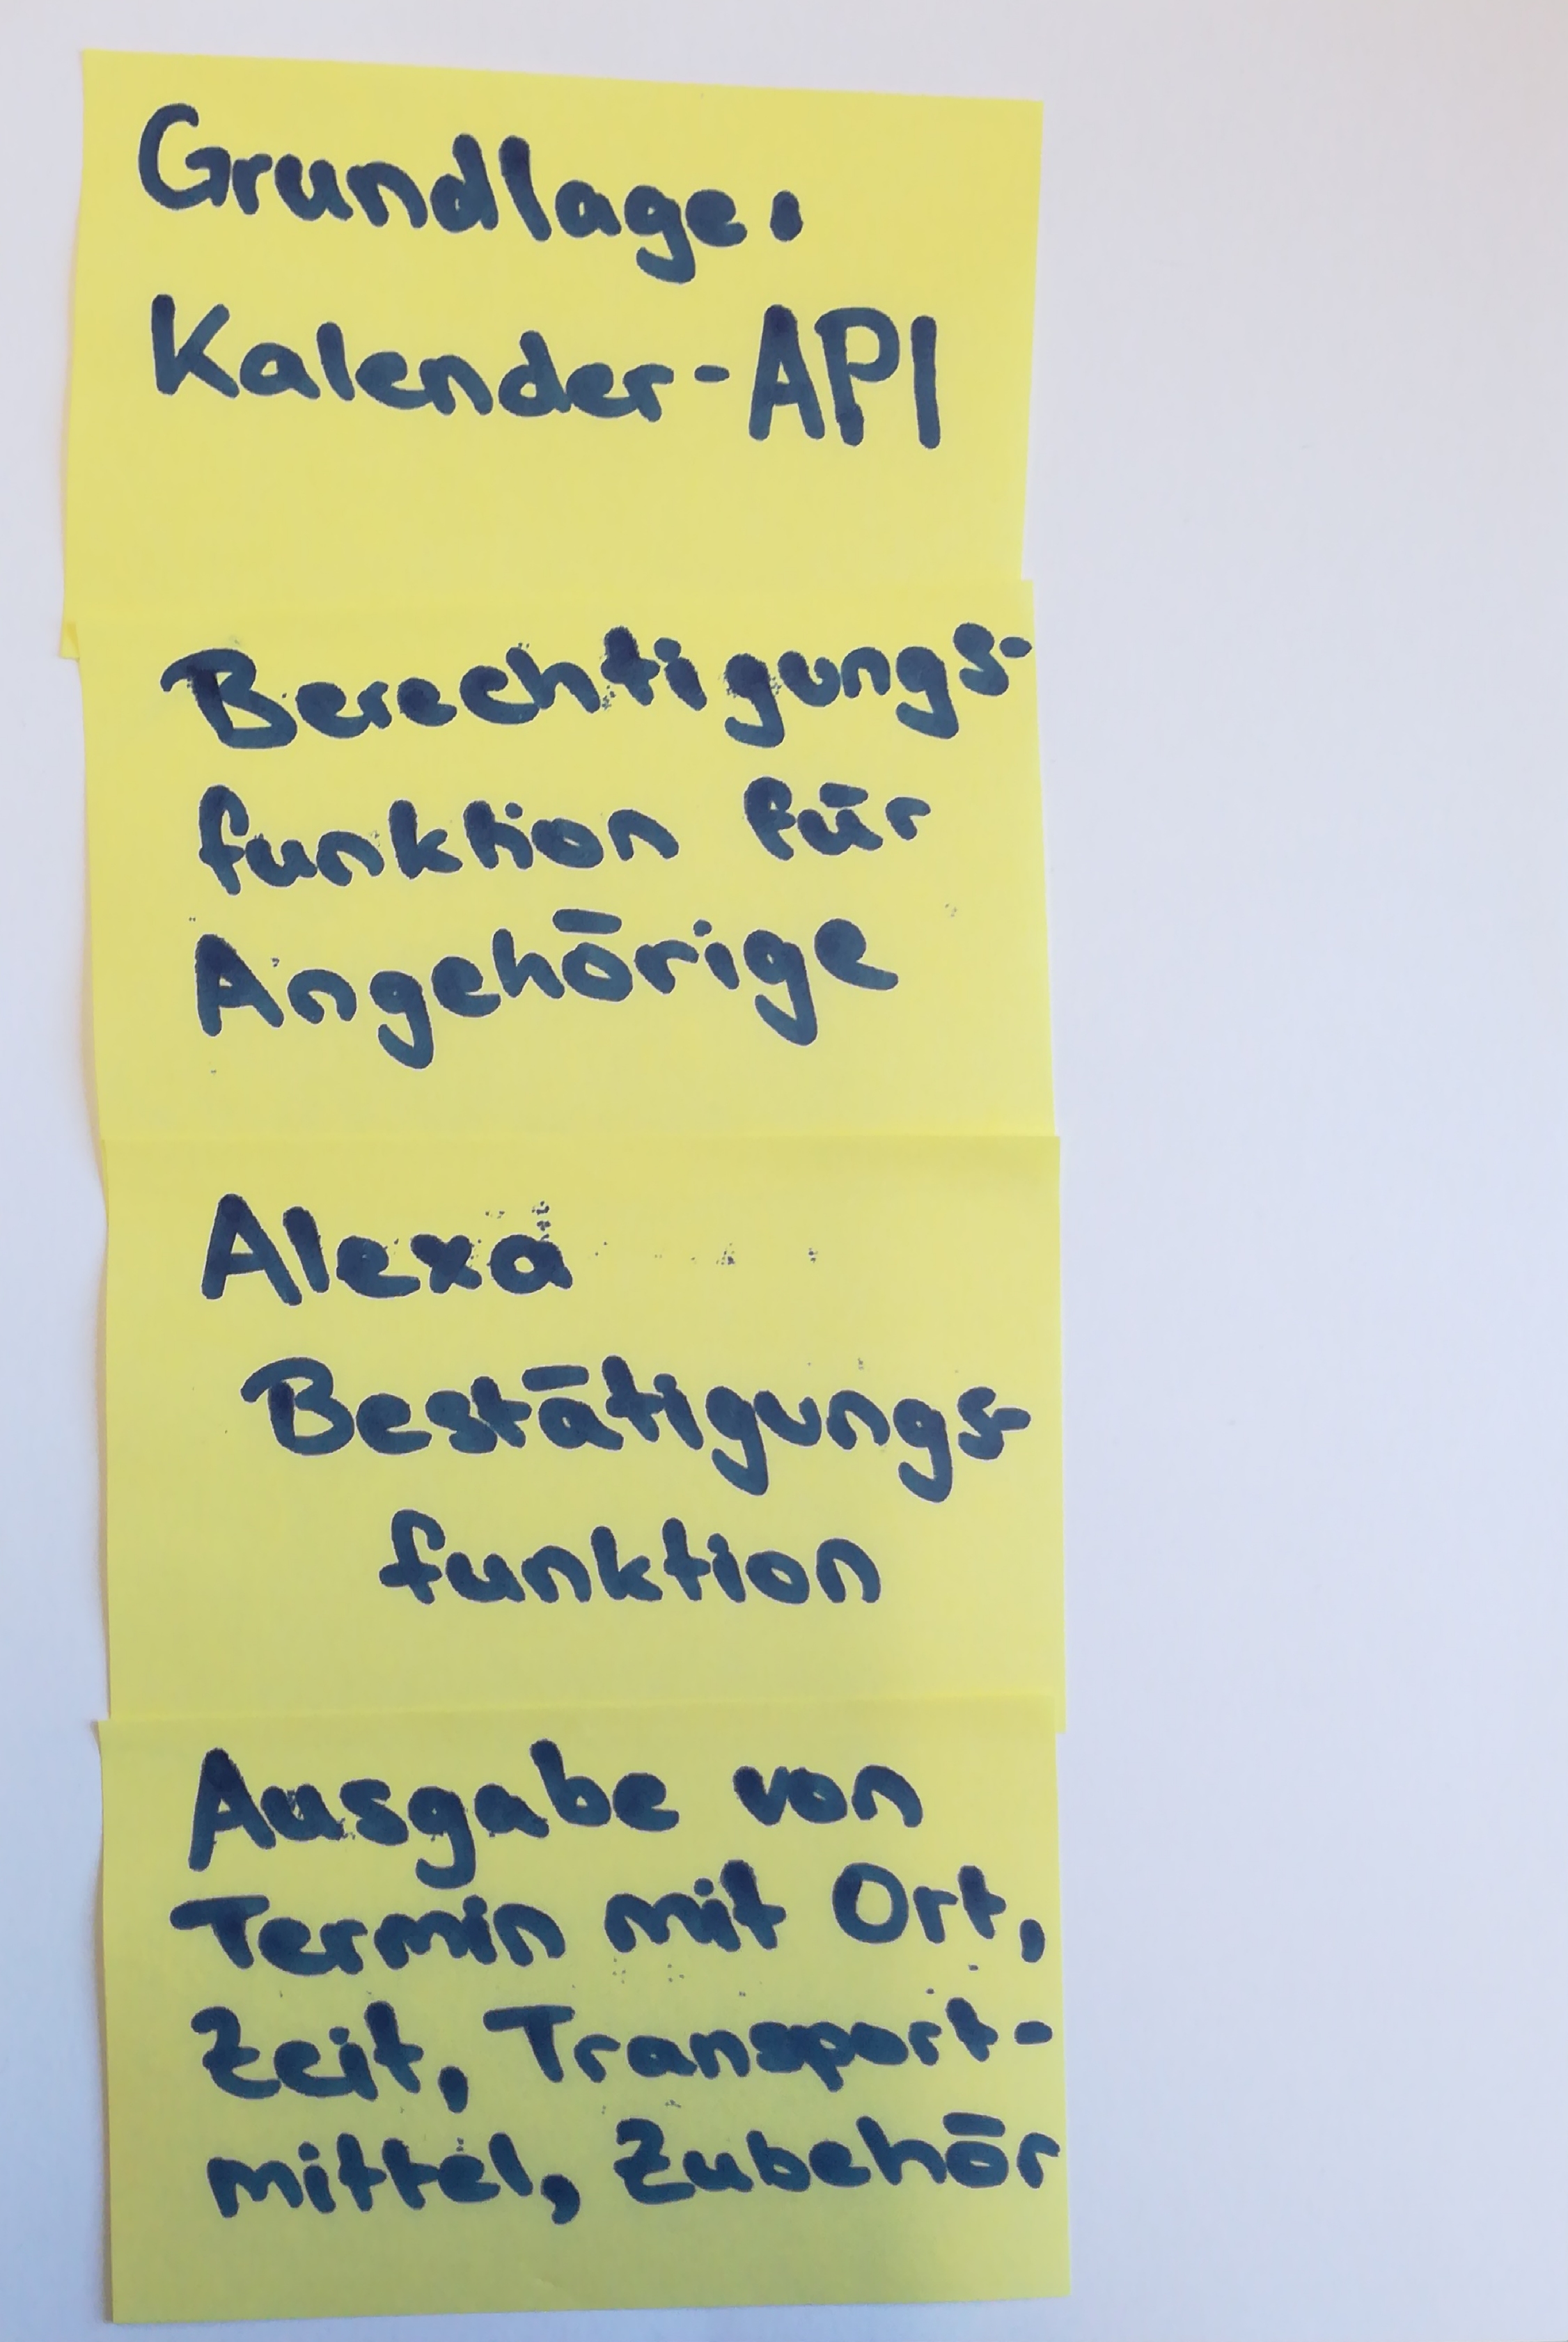 Grundlage:
Kalender-API
Berechtigungs-
funktion für
Angehörige
Alexa
Bestätigungs-
funktion
Ausgabe von
Termin mit Ort,
Zeit, Transport-
mittel, Zubehör